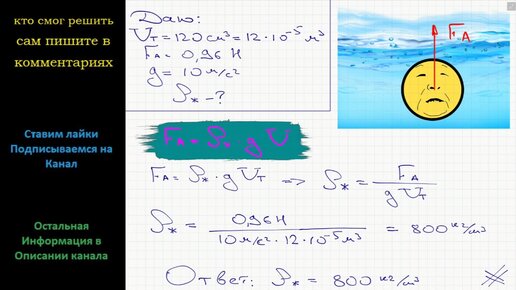 кто смог решить
сам пишите в
комментариях
Ставим лайки
Подписываемся на
Канал
Остальная
Информация в
Описании канала
Дано:
Vт = 120 см³ = 12·10⁻⁵ м³
FА = 0,96 Н
g = 10 м/с²
ρж - ?
FА
FА = ρж g V
FА = ρж · g Vт => ρж = FА / gVт
ρж = 0,96 Н / 10 м/с² · 12·10⁻⁵ м³ = 800 кг/м³
Ответ: ρж = 800 кг/м³